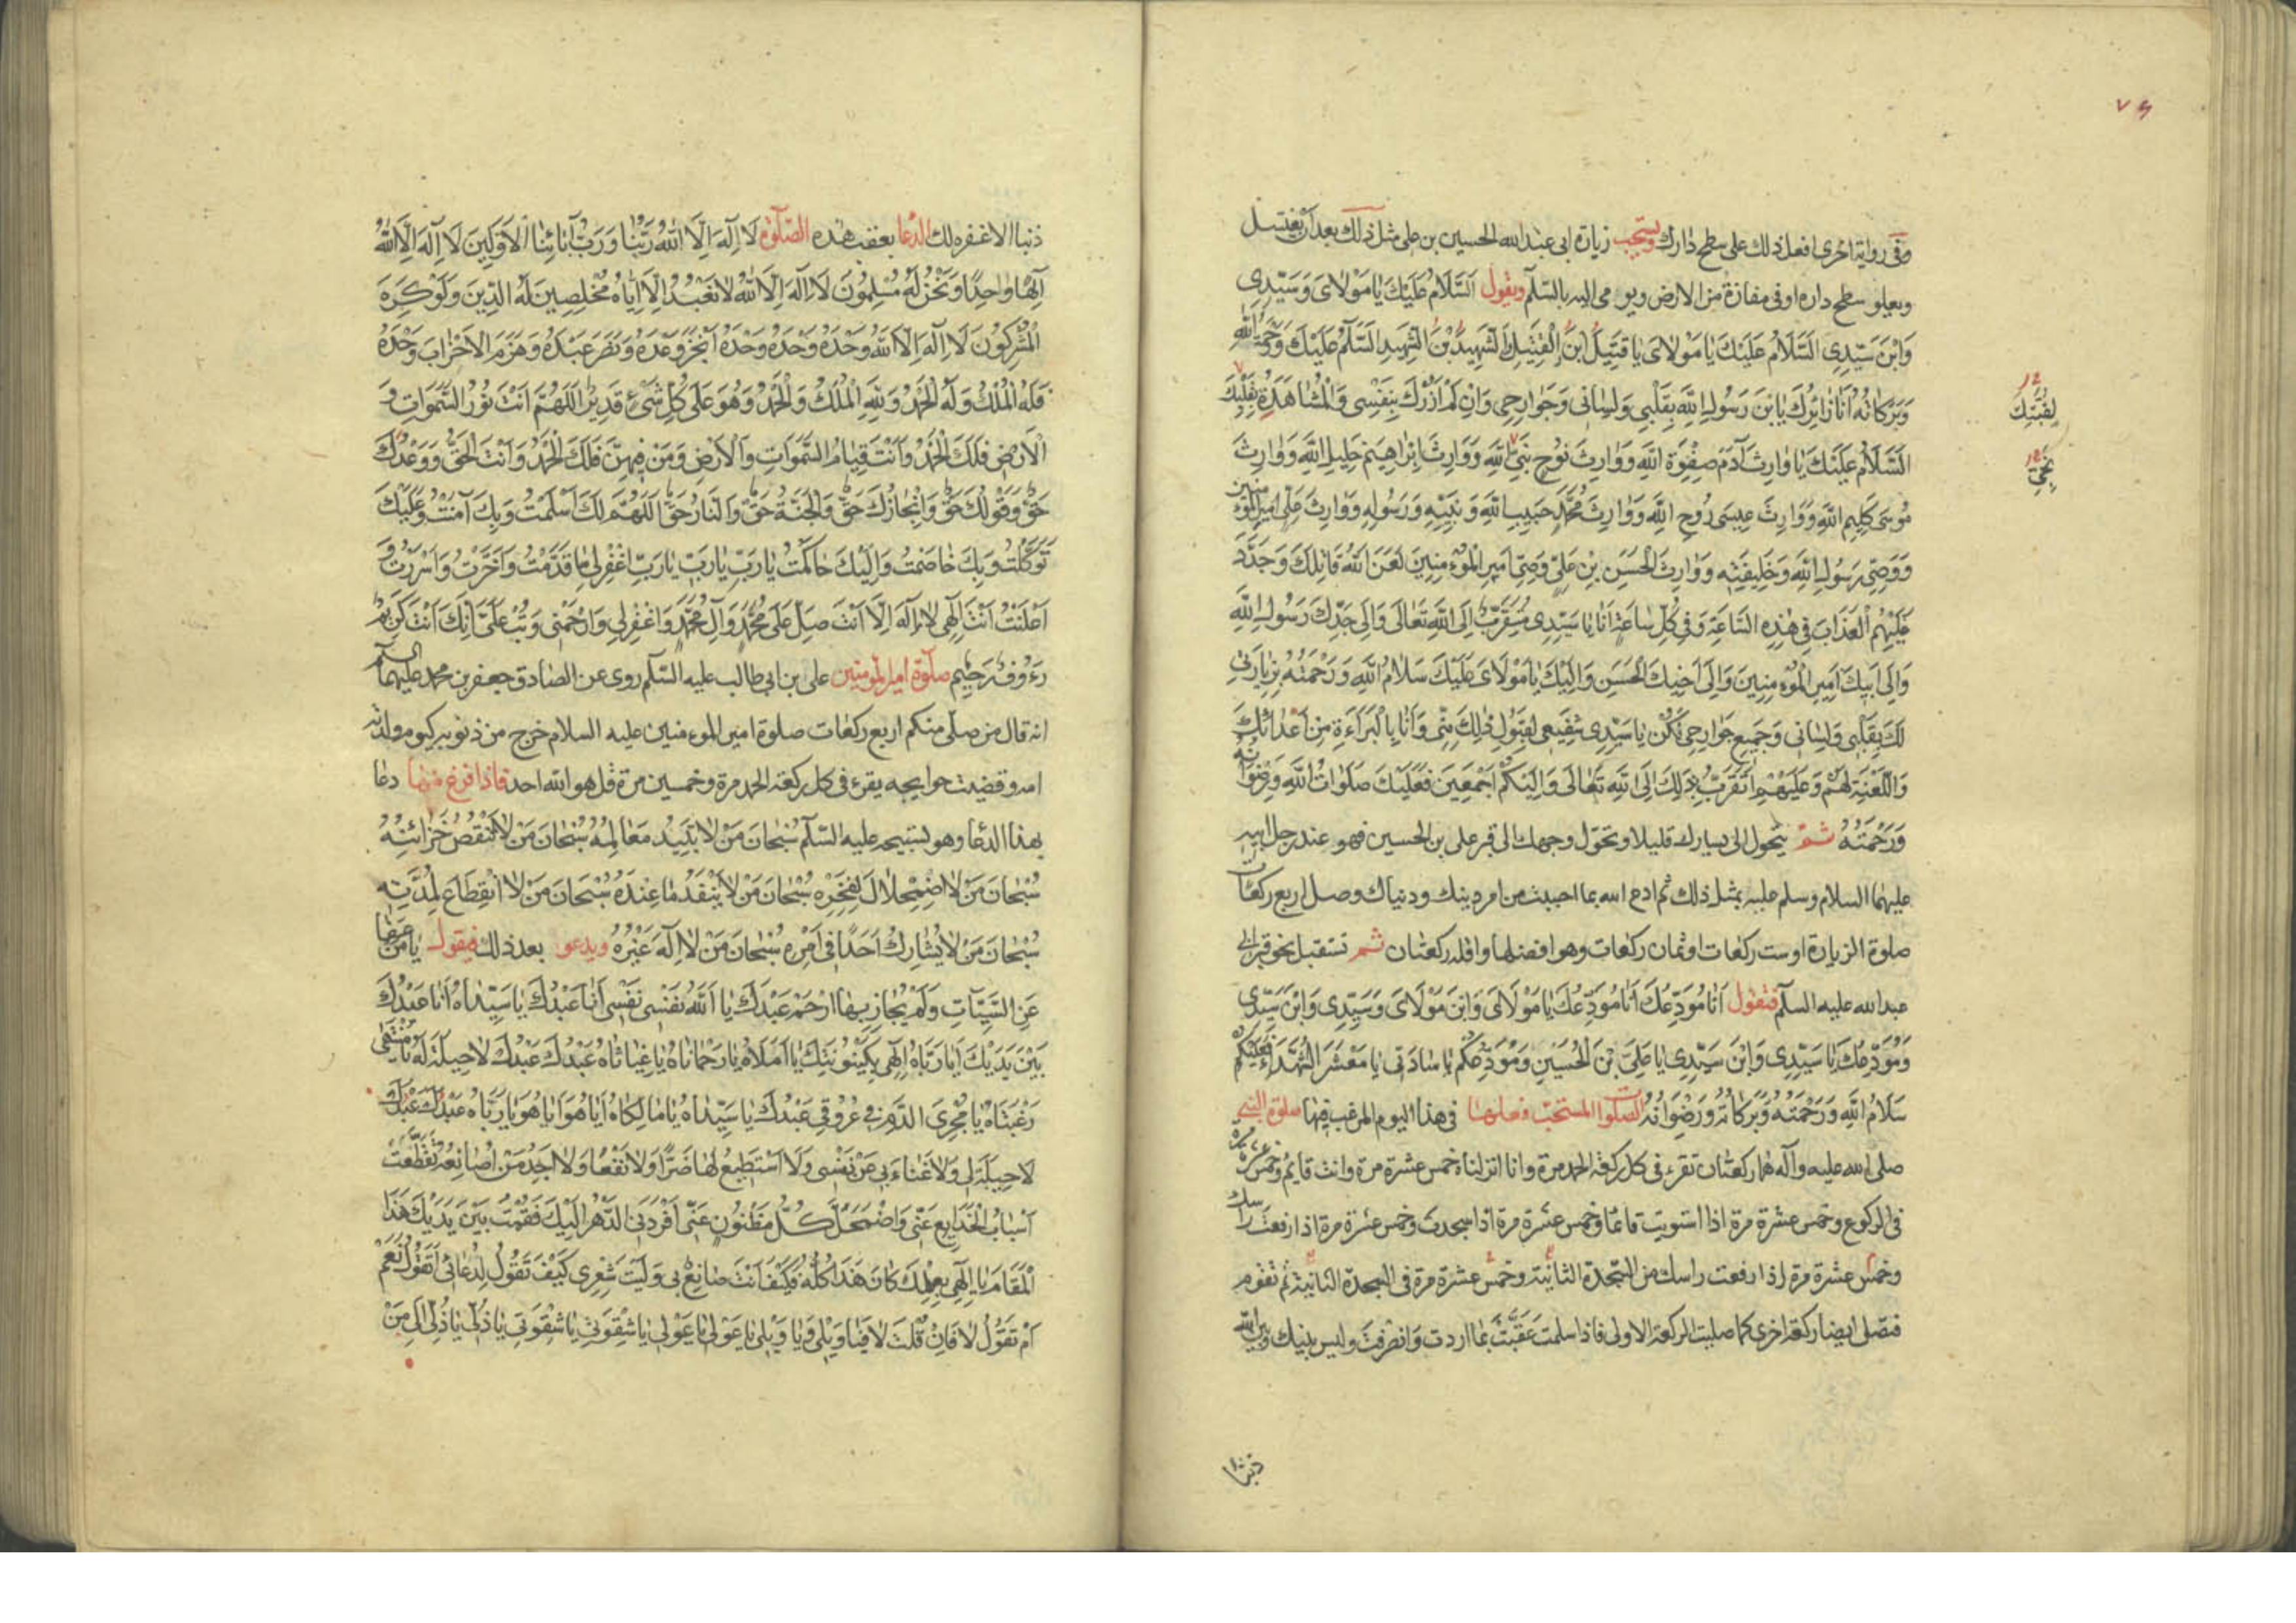 ٧٩
وفى رواية اخرى افعل ذلك على سطح دارك ويستحب زيارة ابى عبد الله الحسين بن على مثل ذلك بعد ان يغتسل
ويعلو سطح داره او فى مفازة من الارض ويومى اليه بالسّلم ويقول اَلسَّلَامُ عَلَيْكَ يَا مَوْلَاىَ وَسَيِّدِى
وَابْنَ سَيِّدِى السَّلَامُ عَلَيْكَ يَا مَوْلَاىَ يَا قَتِيلُ ابْنُ الْقَتِيلِ الشَّهِيدُ بْنُ الشَّهِيدِ السَّلَمُ عَلَيْكَ وَرَحْمَةُ اللّٰهِ
وَبَرَكَاتُهُ اَنَا زَائِرُكَ يَا بْنَ رَسُولِ اللّٰهِ بِقَلْبِى وَلِسَانِى وَجَوَارِحِى وَاِنْ لَمْ اَزُرْكَ بِنَفْسِى وَالْمُشَاهَدَةِ
لِقُبَّتِكَ
السَّلَامُ عَلَيْكَ يَا وَارِثَ آدَمَ صِفْوَةِ اللّٰهِ وَوَارِثَ نُوحٍ نَبِىِّ اللّٰهِ وَوَارِثَ اِبْرَاهِيمَ خَلِيلِ اللّٰهِ وَوَارِثَ
مُوسَى كَلِيمِ اللّٰهِ وَوَارِثَ عِيسَى رُوحِ اللّٰهِ وَوَارِثَ مُحَمَّدٍ حَبِيبِ اللّٰهِ وَنَبِيِّهِ وَرَسُولِهِ وَوَارِثَ عَلِىٍّ اَمِيرِ الْمُؤْمِنِينَ
وَوَصِىِّ رَسُولِ اللّٰهِ وَخَلِيفَتِهِ وَوَارِثَ الْحَسَنِ بْنِ عَلِىٍّ وَصِىِّ اَمِيرِ الْمُؤْمِنِينَ لَعَنَ اللّٰهُ قَاتِلَكَ وَجَدَّدَ
عَلَيْهِمُ الْعَذَابَ فِى هٰذِهِ السَّاعَةِ وَفِى كُلِّ سَاعَةٍ اَنَا يَا سَيِّدِى مُتَقَرِّبٌ اِلَى اللّٰهِ تَعَالَى وَاِلَى جَدِّكَ رَسُولِ اللّٰهِ
وَاِلَى اَبِيكَ اَمِيرِ الْمُؤْمِنِينَ وَاِلَى اَخِيكَ الْحَسَنِ وَاِلَيْكَ يَا مَوْلَاىَ عَلَيْكَ سَلَامُ اللّٰهِ وَرَحْمَتُهُ بِزِيَارَتِى
لَكَ بِقَلْبِى وَلِسَانِى وَجَمِيعِ جَوَارِحِى فَكُنْ يَا سَيِّدِى شَفِيعِى لِقَبُولِ ذٰلِكَ مِنِّى وَاَنَا بِالْبَرَاءَةِ مِنْ اَعْدَائِكَ
وَاللَّعْنَةِ لَهُمْ وَعَلَيْهِمْ اَتَقَرَّبُ بِذٰلِكَ اِلَى اللّٰهِ تَعَالَى وَاِلَيْكُمْ اَجْمَعِينَ فَعَلَيْكَ صَلَوَاتُ اللّٰهِ وَرِضْوَانُهُ
وَرَحْمَتُهُ ثمّ يتحول الى يسارك قليلا وتحوّل وجهك الى قبر على بن الحسين فهو عند رجل ابيه
عليهما السلام وسلم عليه بمثل ذلك ثم ادع الله بما احببت من امر دينك ودنياك وصل اربع ركعات
صلوة الزيارة او ست ركعات او ثمان ركعات وهو افضلها واقله ركعتان ثم تستقبل نحو قبر ابى
عبد الله عليه السلم فتقول اَنَا مُوَدِّعُكَ اَنَا مُوَدِّعُكَ يَا مَوْلَاىَ وَابْنَ مَوْلَاىَ وَسَيِّدِى وَابْنَ سَيِّدِى
وَمُوَدِّعُكَ يَا سَيِّدِى وَابْنَ سَيِّدِى يَا عَلِىَّ بْنَ الْحُسَيْنِ وَمُوَدِّعُكُمْ يَا سَادَتِى يَا مَعْشَرَ الشُّهَدَاءِ فَعَلَيْكُمْ
سَلَامُ اللّٰهِ وَرَحْمَتُهُ وَبَرَكَاتُهُ وَرِضْوَانُهُ الصلوات المستحب فعلها فى هذا اليوم المرغب فيها صلوة النبى
صلى الله عليه وآله هما ركعتان تقرء فى كل ركعة الحمد مرة وانا انزلناه خمس عشرة مرة وانت قايم وخمس عشرة مرة
فى الركوع وخمس عشرة مرة اذا استويت قائما وخمس عشرة مرة اذا سجدت وخمس عشرة مرة اذا رفعت راسك
وخمس عشرة مرة اذا رفعت راسك من السّجدة الثانية وخمس عشرة مرة فى السجدة الثانية ثم تقوم
فتصلى ايضا ركعة اخرى كما صليت الركعة الاولى فاذا سلمت عَقَّبْتَ بما اردت وانصرفت وليس بينك وبين الله
ذنبا الا
ذنبا الا غفره لك الدعا بعقب هذه الصلوة لَا اِلٰهَ اِلَّا اللّٰهُ رَبُّنَا وَرَبُّ آبَائِنَا الْاَوَّلِينَ لَا اِلٰهَ اِلَّا اللّٰهُ
اِلٰهًا وَاحِدًا وَنَحْنُ لَهُ مُسْلِمُونَ لَا اِلٰهَ اِلَّا اللّٰهُ لَا نَعْبُدُ اِلَّا اِيَّاهُ مُخْلِصِينَ لَهُ الدِّينَ وَلَوْ كَرِهَ
الْمُشْرِكُونَ لَا اِلٰهَ اِلَّا اللّٰهُ وَحْدَهُ وَحْدَهُ وَحْدَهُ اَنْجَزَ وَعْدَهُ وَنَصَرَ عَبْدَهُ وَهَزَمَ الْاَحْزَابَ وَحْدَهُ
فَلَهُ الْمُلْكُ وَلَهُ الْحَمْدُ وَلِلّٰهِ الْمُلْكُ وَالْحَمْدُ وَهُوَ عَلَى كُلِّ شَىْءٍ قَدِيرٌ اَللّٰهُمَّ اَنْتَ نُورُ السَّمَوَاتِ وَ
الْاَرْضِ فَلَكَ الْحَمْدُ وَاَنْتَ قِيَامُ السَّمَوَاتِ وَالْاَرْضِ وَمَنْ فِيهِنَّ فَلَكَ الْحَمْدُ وَاَنْتَ الْحَقُّ وَوَعْدُكَ
حَقٌّ وَقَوْلُكَ حَقٌّ وَاِنْجَازُكَ حَقٌّ وَالْجَنَّةُ حَقٌّ وَالنَّارُ حَقٌّ اَللّٰهُمَّ لَكَ اَسْلَمْتُ وَبِكَ آمَنْتُ وَعَلَيْكَ
تَوَكَّلْتُ وَبِكَ خَاصَمْتُ وَاِلَيْكَ حَاكَمْتُ يَا رَبِّ يَا رَبِّ يَا رَبِّ اغْفِرْ لِى مَا قَدَّمْتُ وَاَخَّرْتُ وَاَسْرَرْتُ وَ
اَعْلَنْتُ اَنْتَ اِلٰهِى لَا اِلٰهَ اِلَّا اَنْتَ صَلِّ عَلَى مُحَمَّدٍ وَآلِ مُحَمَّدٍ وَاغْفِرْ لِى وَارْحَمْنِى وَتُبْ عَلَىَّ اِنَّكَ اَنْتَ كَرِيمٌ
رَءُوفٌ رَحِيمٌ صلوة امير المومنين على بن ابى طالب عليه السّلم روى عن الصادق جعفر بن محمد عليهما السلم
انه قال من صلّى منكم اربع ركعات صلوة امير المومنين عليه السلام خرج من ذنوبه كيوم ولدته
امه وقضيت حوايجه يقرء فى كل ركعة الحمد مرة وخمسين مرة قل هو الله احد فاذا فرغ منها دعا
بهذا الدعا وهو تسبيحه عليه السّلم سُبْحَانَ مَنْ لَا تَبِيدُ مَعَالِمُهُ سُبْحَانَ مَنْ لَا تَنْقُصُ خَزَائِنُهُ
سُبْحَانَ مَنْ لَا اضْمِحْلَالَ لِفَخْرِهِ سُبْحَانَ مَنْ لَا يَنْفَدُ مَا عِنْدَهُ سُبْحَانَ مَنْ لَا انْقِطَاعَ لِمُدَّتِهِ
سُبْحَانَ مَنْ لَا يُشَارِكُ اَحَدًا فِى اَمْرِهِ سُبْحَانَ مَنْ لَا اِلٰهَ غَيْرُهُ ويدعو بعد ذلك فيقول يَا مَنْ عَفَا
عَنِ السَّيِّئَاتِ وَلَمْ يُجَازِ بِهَا ارْحَمْ عَبْدَكَ يَا اَللّٰهُ نَفْسِى نَفْسِى اَنَا عَبْدُكَ يَا سَيِّدَاهُ اَنَا عَبْدُكَ
بَيْنَ يَدَيْكَ اَيَا رَبَّاهُ اِلٰهِى بِكَيْنُونَتِكَ يَا اَمَلَاهُ يَا رَحْمَانَاهُ يَا غِيَاثَاهُ عَبْدُكَ عَبْدُكَ لَا حِيلَةَ لَهُ يَا مُنْتَهَى
رَغْبَتَاهُ يَا مُجْرِىَ الدَّمِ فِى عُرُوقِى عَبْدُكَ يَا سَيِّدَاهُ يَا مَالِكَاهُ اَيَا هُوَ اَيَا هُوَ يَا رَبَّاهُ عَبْدُكَ عَبْدُكَ
لَا حِيلَةَ لِى وَلَا غَنَاءَ بِى عَنْ نَفْسِى وَلَا اَسْتَطِيعُ لَهَا ضَرًّا وَلَا نَفْعًا وَلَا اَجِدُ مَنْ اُصَانِعُهُ تَقَطَّعَتْ
اَسْبَابُ الْخَدَايِعِ عَنِّى وَاضْمَحَلَّ كُلُّ مَظْنُونٍ عَنِّى اَفْرَدَنِى الدَّهْرُ اِلَيْكَ فَقُمْتُ بَيْنَ يَدَيْكَ هَذَا
الْمَقَامَ يَا اِلٰهِى بِعِلْمِكَ كَانَ هَذَا كُلُّهُ فَكَيْفَ اَنْتَ صَانِعٌ بِى وَلَيْتَ شِعْرِى كَيْفَ تَقُولُ لِدُعَائِى اَتَقُولُ نَعَمْ
اَمْ تَقُولُ لَا فَاِنْ قُلْتَ لَا فَيَا وَيْلِى وَيَا وَيْلِى يَا عَوْلِى يَا عَوْلِى يَا شِقْوَتِى يَا شِقْوَتِى يَا ذُلِّى يَا ذُلِّى اِلَى مَنْ